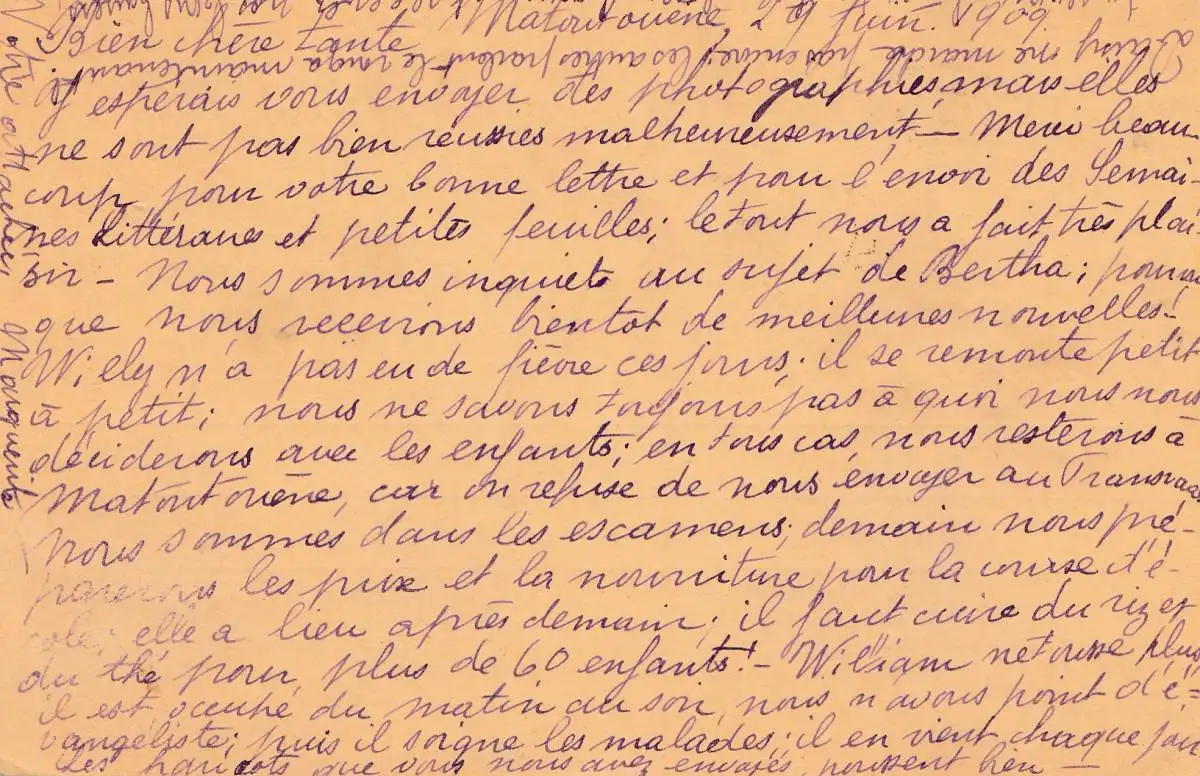 Matoutouène, 29 Juin. 1909
Bien chère Tante,
J'espérais vous envoyer des photographies, mais elles
ne sont pas bien réussies malheureusement. — Merci beau-
coup pour votre bonne lettre et pour l'envoi des Semai-
nes Littéraires et petites feuilles; le tout nous a fait très plai-
sir — Nous sommes inquiets au sujet de Bertha; pourvu
que nous recevions bientot de meilleures nouvelles!
Wiely n'a pas eu de fièvre ces jours; il se remonte petit
à petit; nous ne savons toujours pas à quoi nous nous
déciderons avec les enfants; en tous cas, nous resterons à
Matoutouène, car on refuse de nous envoyer au Transvaal
Nous sommes dans les escamens; demain nous pré-
parerons les prix et la nourriture pour la course d'é-
cole; elle a lieu après demain; il faut cuire du riz et
du thé pour plus de 60 enfants! — William ne tousse plus
il est occupé du matin au soir, nous n'avons point d'é-
vangéliste; puis il soigne les malades; il en vient chaque jour
Les haricots que vous nous avez envoyés, poussent bien —
ne marche pas encore; les autres parlent le ronga maintenant
Votre attachée, Marguerite